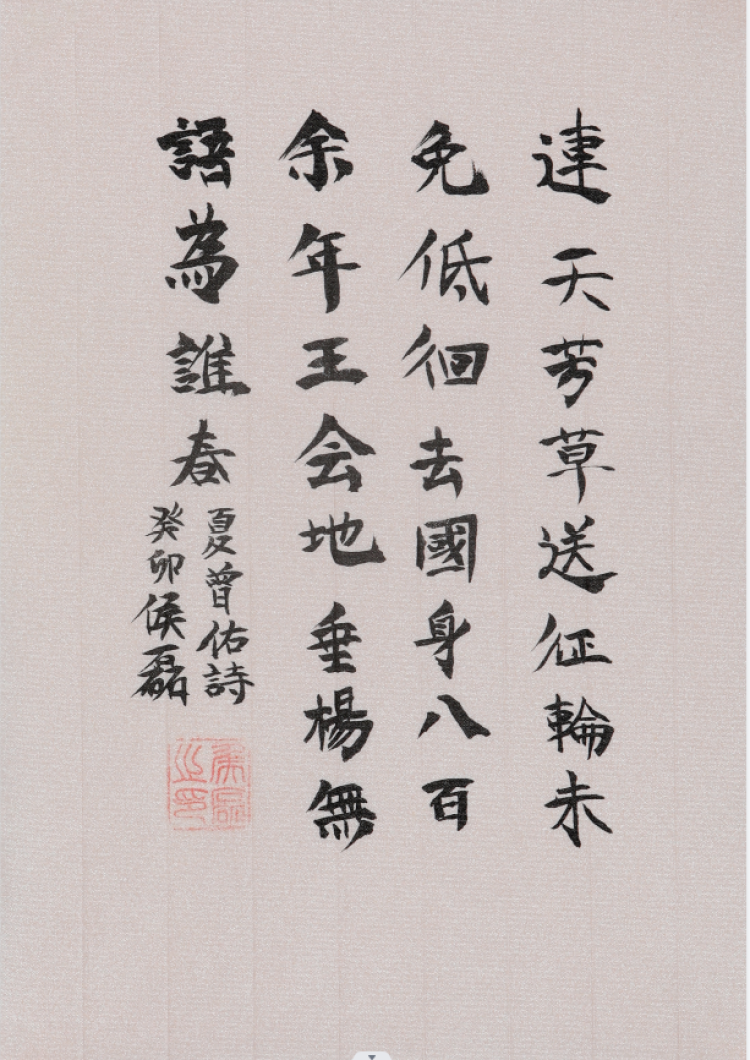 連天芳草送征輪未
免低徊去國身八百
余年王会地垂楊無
語為誰春
夏曾佑詩
癸卯侯磊